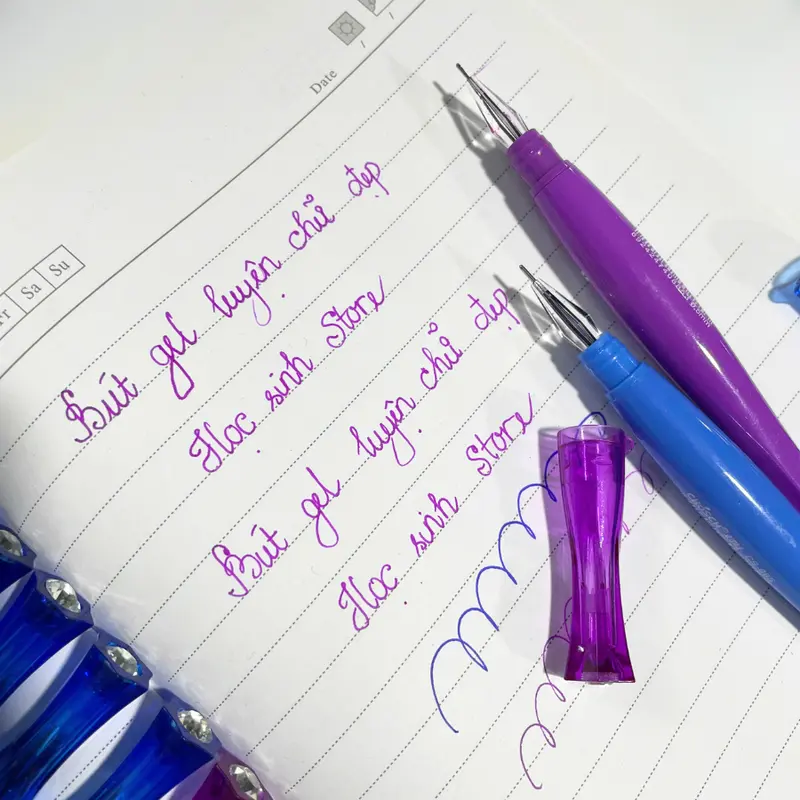 Date / /
Fr Sa Su
Bút gel luyện chữ đẹp
Học sinh Store
Bút gel luyện chữ đẹp
Học sinh Store